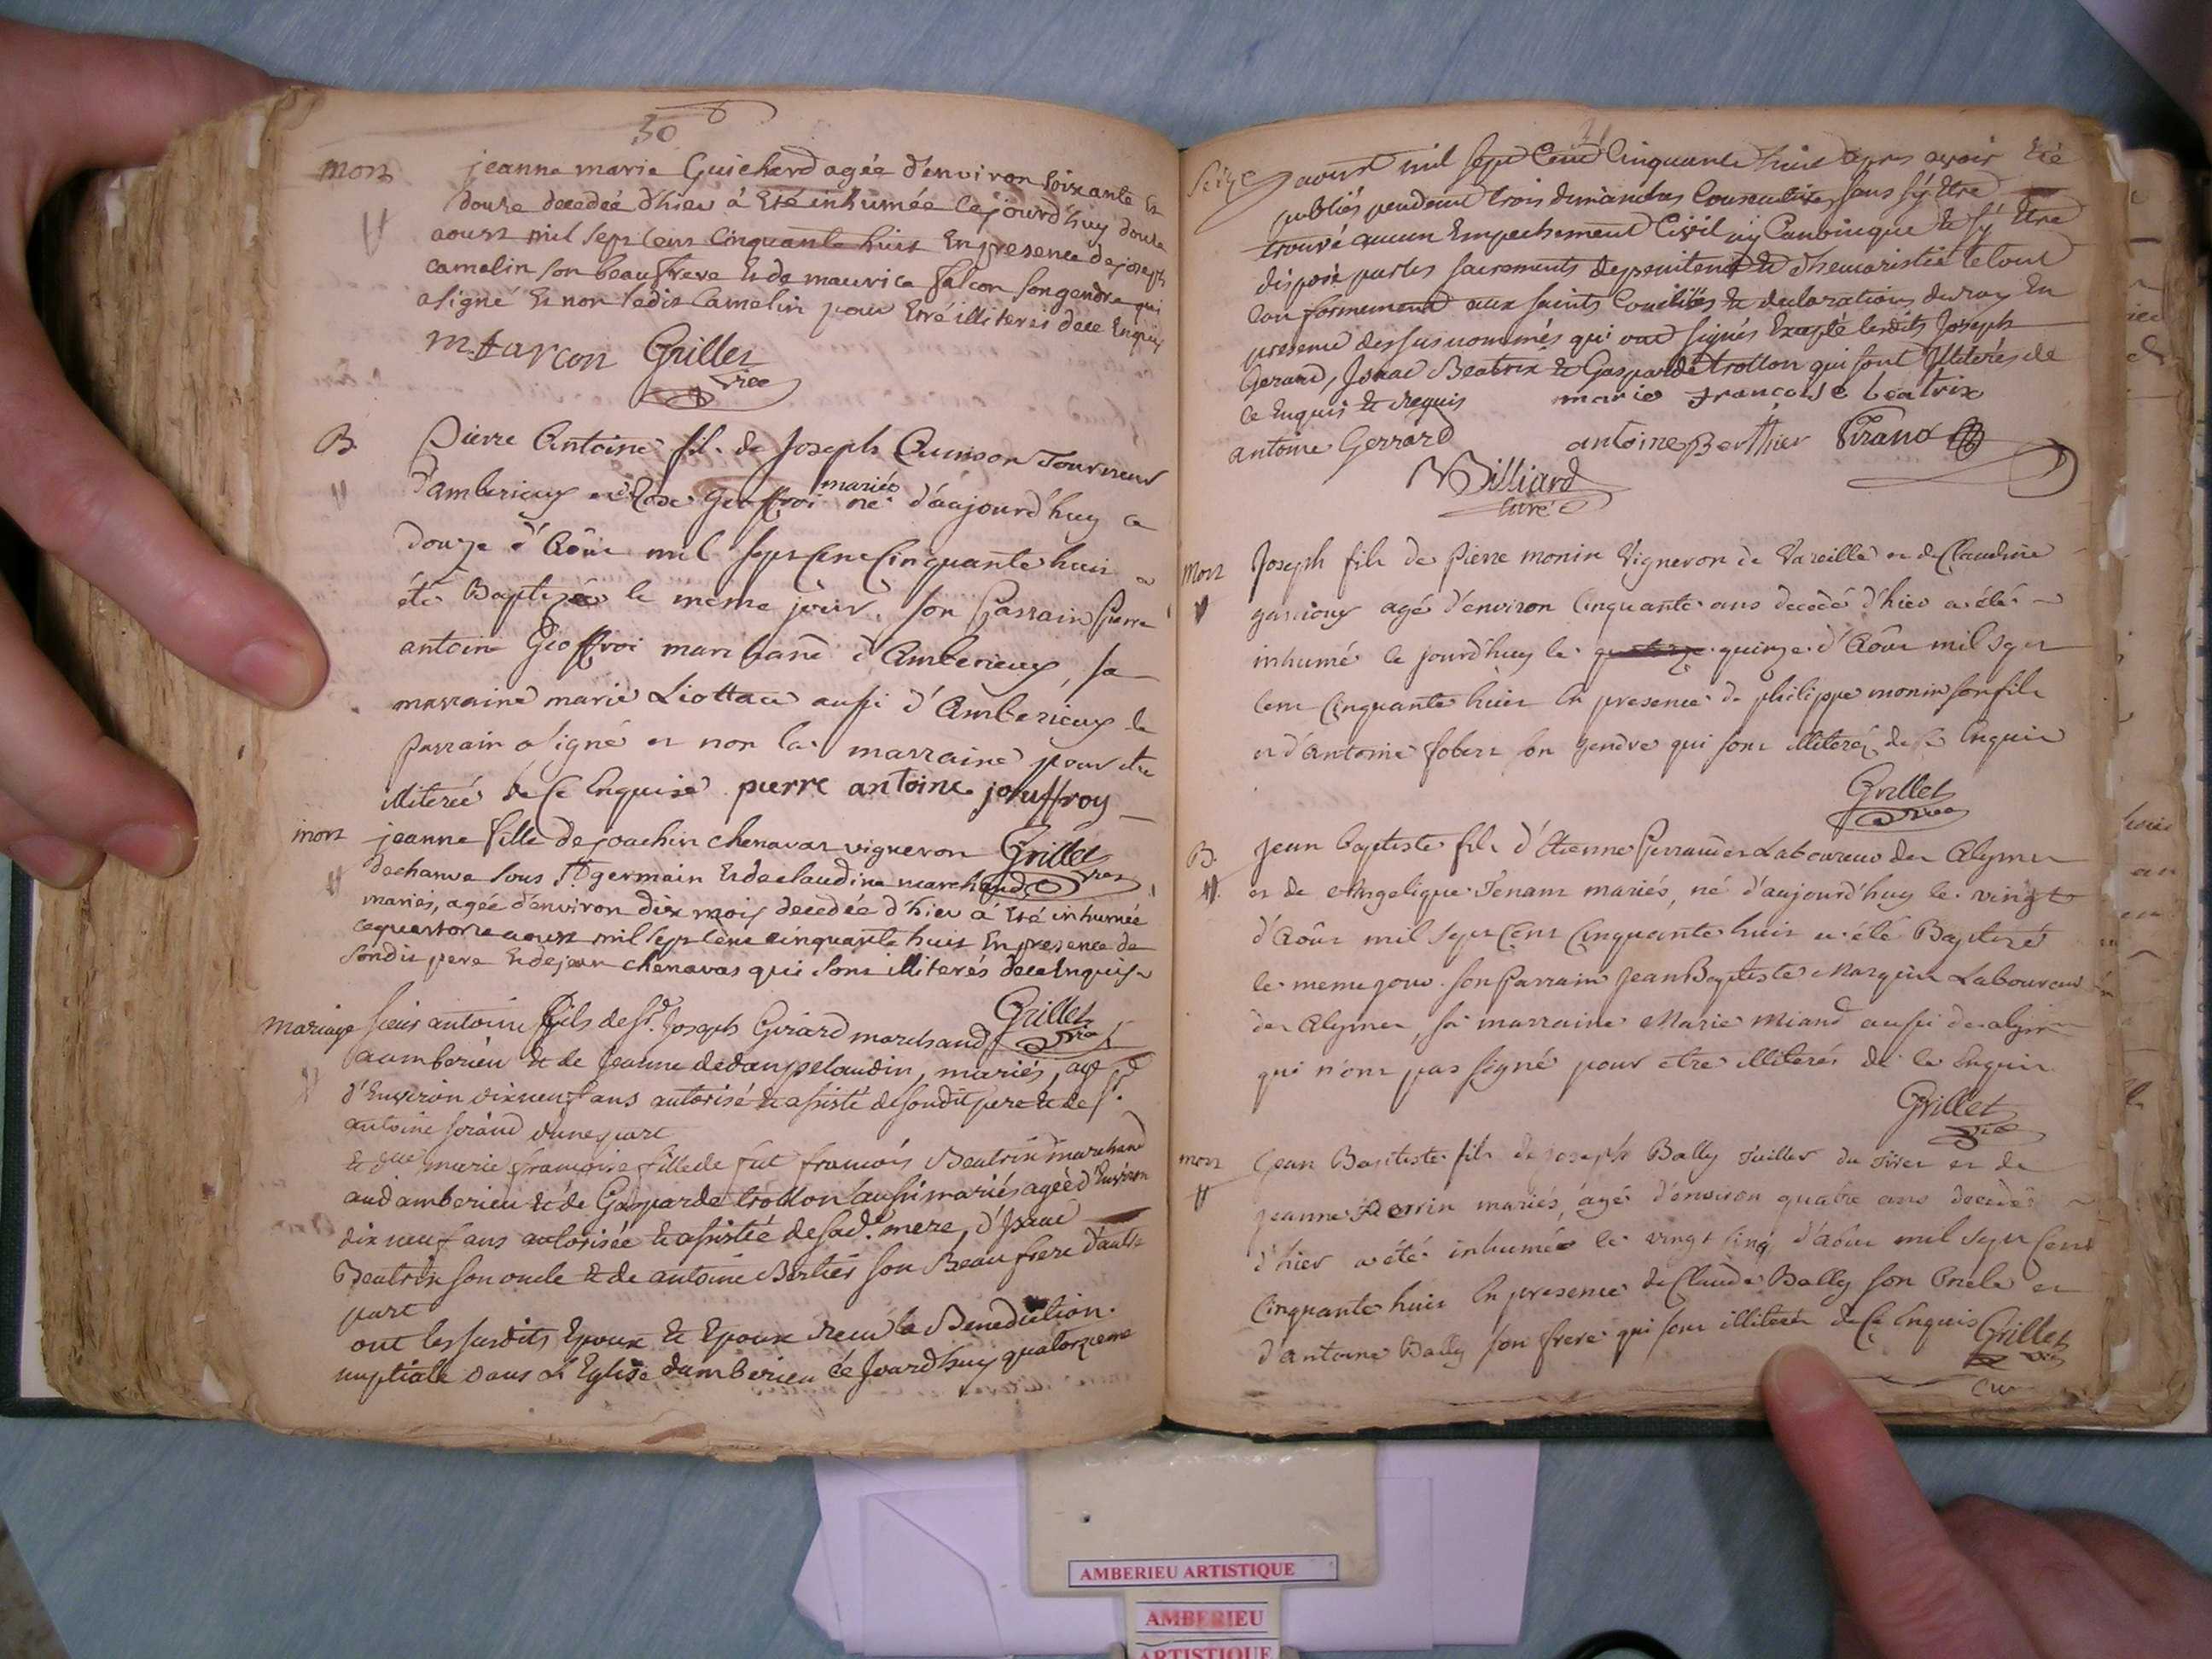 30
mort jeanne marie Guichard agée d'environ soixante et
douze decedée d'hier à eté inhumée cejourd'huy douze
aoust mil sept cens cinquante huit en presence de joseph
camelin son beaufrere et de maurice falcon son gendre qui
a signé et non ledit camelin pour etre illiteré de ce enquis
m. farcon Grillet
vice
B. Pierre Antoine fils de Joseph Quinson Tourneur
d'amberieux et Rose Geoffroi mariés né d'aujourd'huy ce
douze d'Aôut mil sept cent cinquante huit a
été Baptizé le même jour, son Parrain Pierre
antoine Geoffroi marchand d'Amberieux, sa
marraine marie Liottau aussi d'Amberieux le
parrain a signé et non la marraine pour etre
illiterée de ce enquise pierre antoine jouffroy
Grillet
vice
mort jeanne fille de joachin chenavas vigneron
de chanve sous St. germain et de claudine marchand
mariés, agée d'environ dix mois decedée d'hier a eté inhumée
ce quatorze aoust mil sept cens cinquante huit en presence de
sondit pere et de jean chenavas qui sont illiterés de ce enquis
Grillet
vice
mariage sieur antoine fils de Sr. Joseph Gerard marchand
a amberieu et de Jeanne, mariés, agé
d'environ dix neuf ans autorisé et assisté de sondit pere et de Sr.
antoine d'une part
et marie françoise fille de fut françois Beatrix marchand
aud amberieu et de Gasparde trollon aussi mariés agée d'environ
dix neuf ans autorisée et assistée de sad. mere, d'Isaac
Beatrix son oncle et de antoine Bertier son Beau frere d'autre
part
ont lessusdits Epoux et Epouse recu la Benediction
nuptiale dans L'Eglise damberieu ce Jourdhuy quatorzieme
Seize aoust mil sept Cent Cinquante huit apres avoir eté
publiés pendant trois dimanches Consecutives sans s'y etre
trouvé aucun Empechement Civil ny Canonique et s'y etre
disposé par les sacrements de penitence et d'heucaristie le tout
Conformement aux saints Conciles et declarations du roy En
presence des susnommés qui ont signés Excepté lesdits Joseph
Gerard, Isaac Beatrix et Gasparde trollon qui sont Illiterés de
ce Enquis et requis marie francoise beatrix
antoine Gerrard antoine Berthier
Billiard
curé
mort Joseph fils de Pierre monin Vigneron de Vareille et de Claudine
agé d'environ Cinquante ans decedé d'hier a été
inhumé ce jourd'huy le quatorze quinze d'Aôut mil sept
cent Cinquante huit en presence de philippe monin son fils
et d'Antoine Jobert son gendre qui sont illiterés de ce enquis
Grillet
vice
B. Jean Baptiste fils d'Etienne Laboureur des Alymes
et de Angelique Tenant mariés, né d'aujourd'huy le vingt
d'Aôut mil sept cent Cinquante huit a été Baptizé
le meme jour son Parrain Jean Baptiste Laboureur
des Alymes, sa marraine Marie Miand aussi des alymes
qui n'ont pas signé pour etre illiterés de ce enquis
Grillet
vice
mort Jean Baptiste fils de Joseph Bally du et de
jeanne Perrin mariés, agé d'environ quatre ans decedé
d'hier a été inhumé le vingt cinq d'aôut mil sept cent
Cinquante huit en presence de Claude Bally son Oncle et
d'Antoine Bally son frere qui sont illiterés de ce enquis Grillet
AMBERIEU ARTISTIQUE
AMBERIEU
ARTISTIQUE